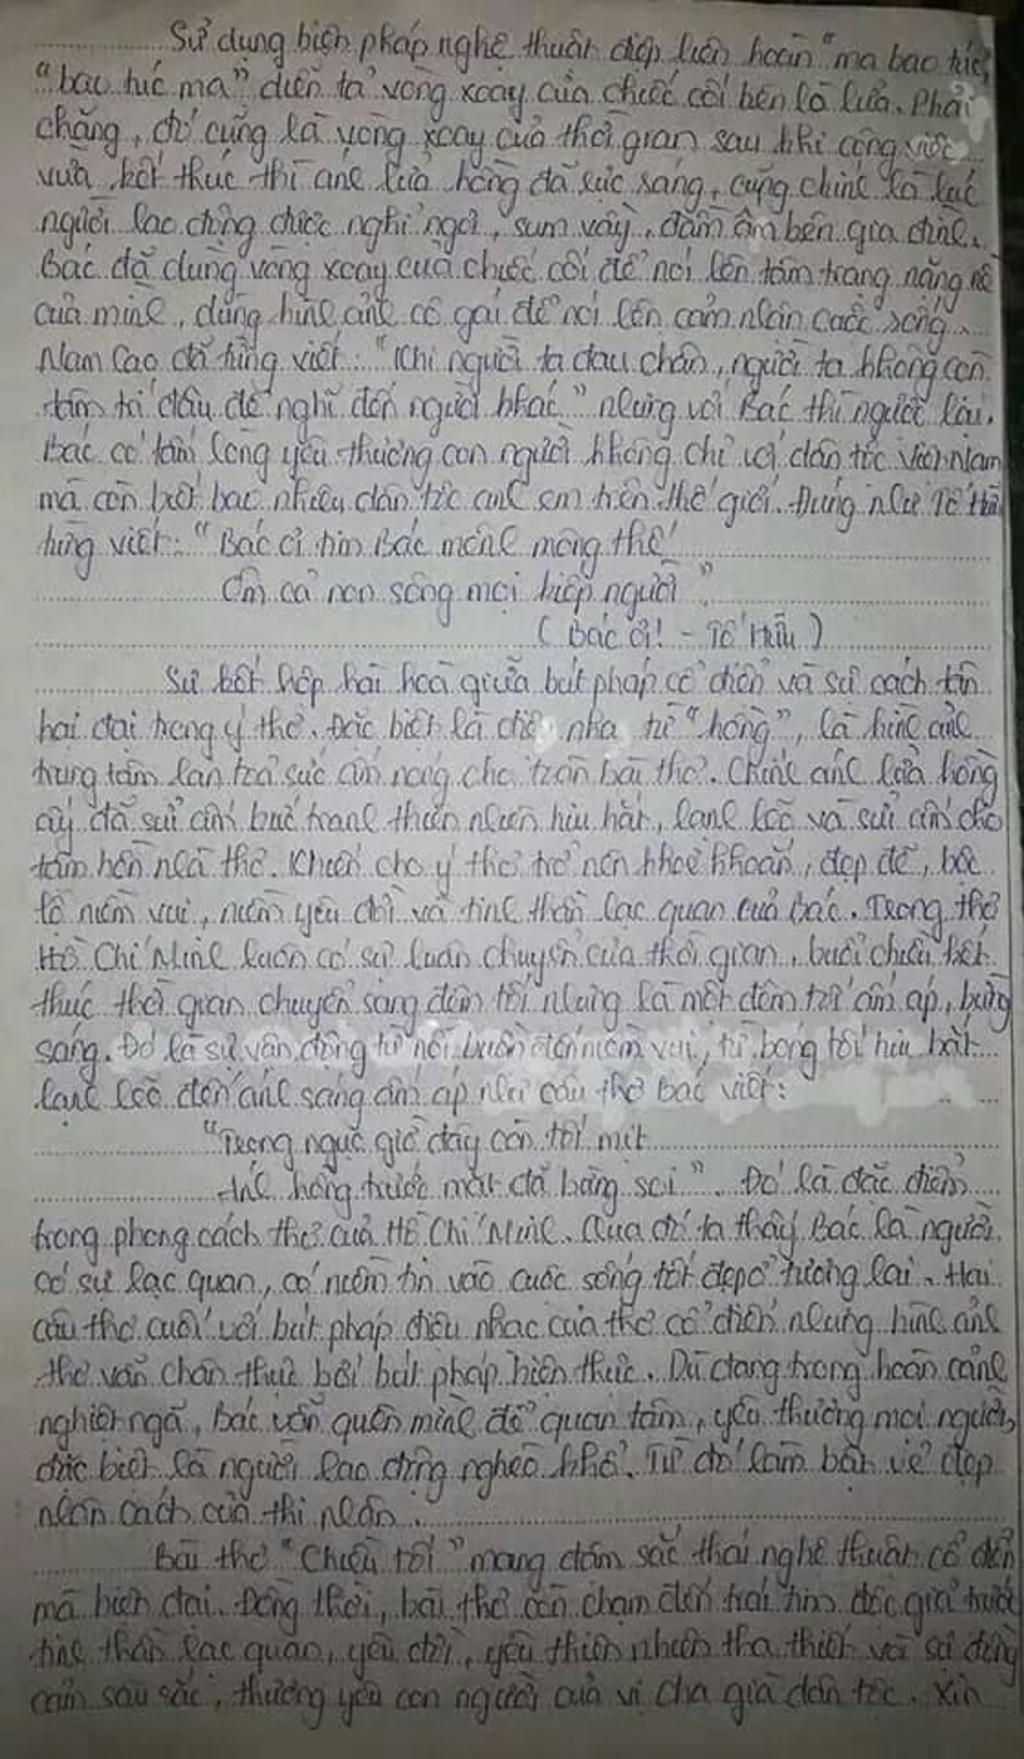 Sử dụng biện pháp nghệ thuật điệp liên hoàn "ma bao túc",
"bao túc ma" diễn tả vòng xoay của chiếc cối bên lò lửa. Phải
chăng, đó cũng là vòng xoay của thời gian sau khi công việc
vừa kết thúc thì ánh lửa hồng đã rực sáng, cũng chính là lúc
người lao động được nghỉ ngơi, sum vầy, đầm ấm bên gia đình.
Bác đã dùng vòng xoay của chiếc cối để nói lên tâm trạng nặng nề
của mình, dùng hình ảnh cô gái để nói lên cảm nhận cuộc sống.
Nam Cao đã từng viết: "Khi người ta đau chân, người ta không còn
tâm tá đâu để nghĩ đến người khác" nhưng với Bác thì ngược lại.
Bác có tấm lòng yêu thương con người không chỉ với dân tộc Việt Nam
mà còn biết bao nhiêu dân tộc anh em trên thế giới. Đúng như Tố Hữu
từng viết: "Bác ơi tim Bác mênh mông thế
Ôm cả non sông mọi kiếp người"
(Bác ơi! - Tố Hữu)
Sự kết hợp hài hoà giữa bút pháp cổ điển và sự cách tân
hại đại trong ý thơ. Đặc biệt là chữ từ "hồng", là hình ảnh
trung tâm lan toả sức ấm nóng cho toàn bài thơ. Chính ánh lửa hồng
ấy đã sưởi ấm bức tranh thiên nhiên hiu hắt, lạnh lẽo và sưởi ấm cho
tâm hồn nhà thơ. Khiến cho ý thơ trở nên khoẻ khoắn, đẹp đẽ, bộc
lộ niềm vui, niềm yêu đời và tinh thần lạc quan của Bác. Trong thơ
Hồ Chí Minh luôn có sự luân chuyển của thời gian, buổi chiều kết
thúc thời gian chuyển sang đêm tối nhưng là một đêm tối ấm áp, bừng
sáng. Đó là sự vận động từ nỗi buồn đến niềm vui, từ bóng tối hiu hắt
lạnh lẽo đến ánh sáng ấm áp như câu thơ Bác viết:
"Trong ngục giờ đây còn tối mịt
Ánh hồng trước mặt đã bừng soi". Đó là đặc điểm
trong phong cách thơ của Hồ Chí Minh. Qua đó ta thấy Bác là người
có sự lạc quan, có niềm tin vào cuộc sống tốt đẹp ở tương lai. Hai
câu thơ cuối với bút pháp điệu nhạc của thơ cổ điển nhưng hình ảnh
thơ vẫn chân thực bởi bút pháp hiện thực. Dù đang trong hoàn cảnh
nghiệt ngã, Bác vẫn quên mình để quan tâm, yêu thương mọi người,
đặc biệt là người lao động nghèo khổ. Từ đó làm bật vẻ đẹp
nhân cách của thi nhân.
Bài thơ "Chiều tối" mang đậm sắc thái nghệ thuật cổ điển
mà hiện đại. Đồng thời, bài thơ còn chạm đến trái tim độc giả trước
tinh thần lạc quan, yêu đời, yêu thiên nhiên tha thiết và sự đồng
cảm sâu sắc, thương yêu con người của vị cha già dân tộc. Xin